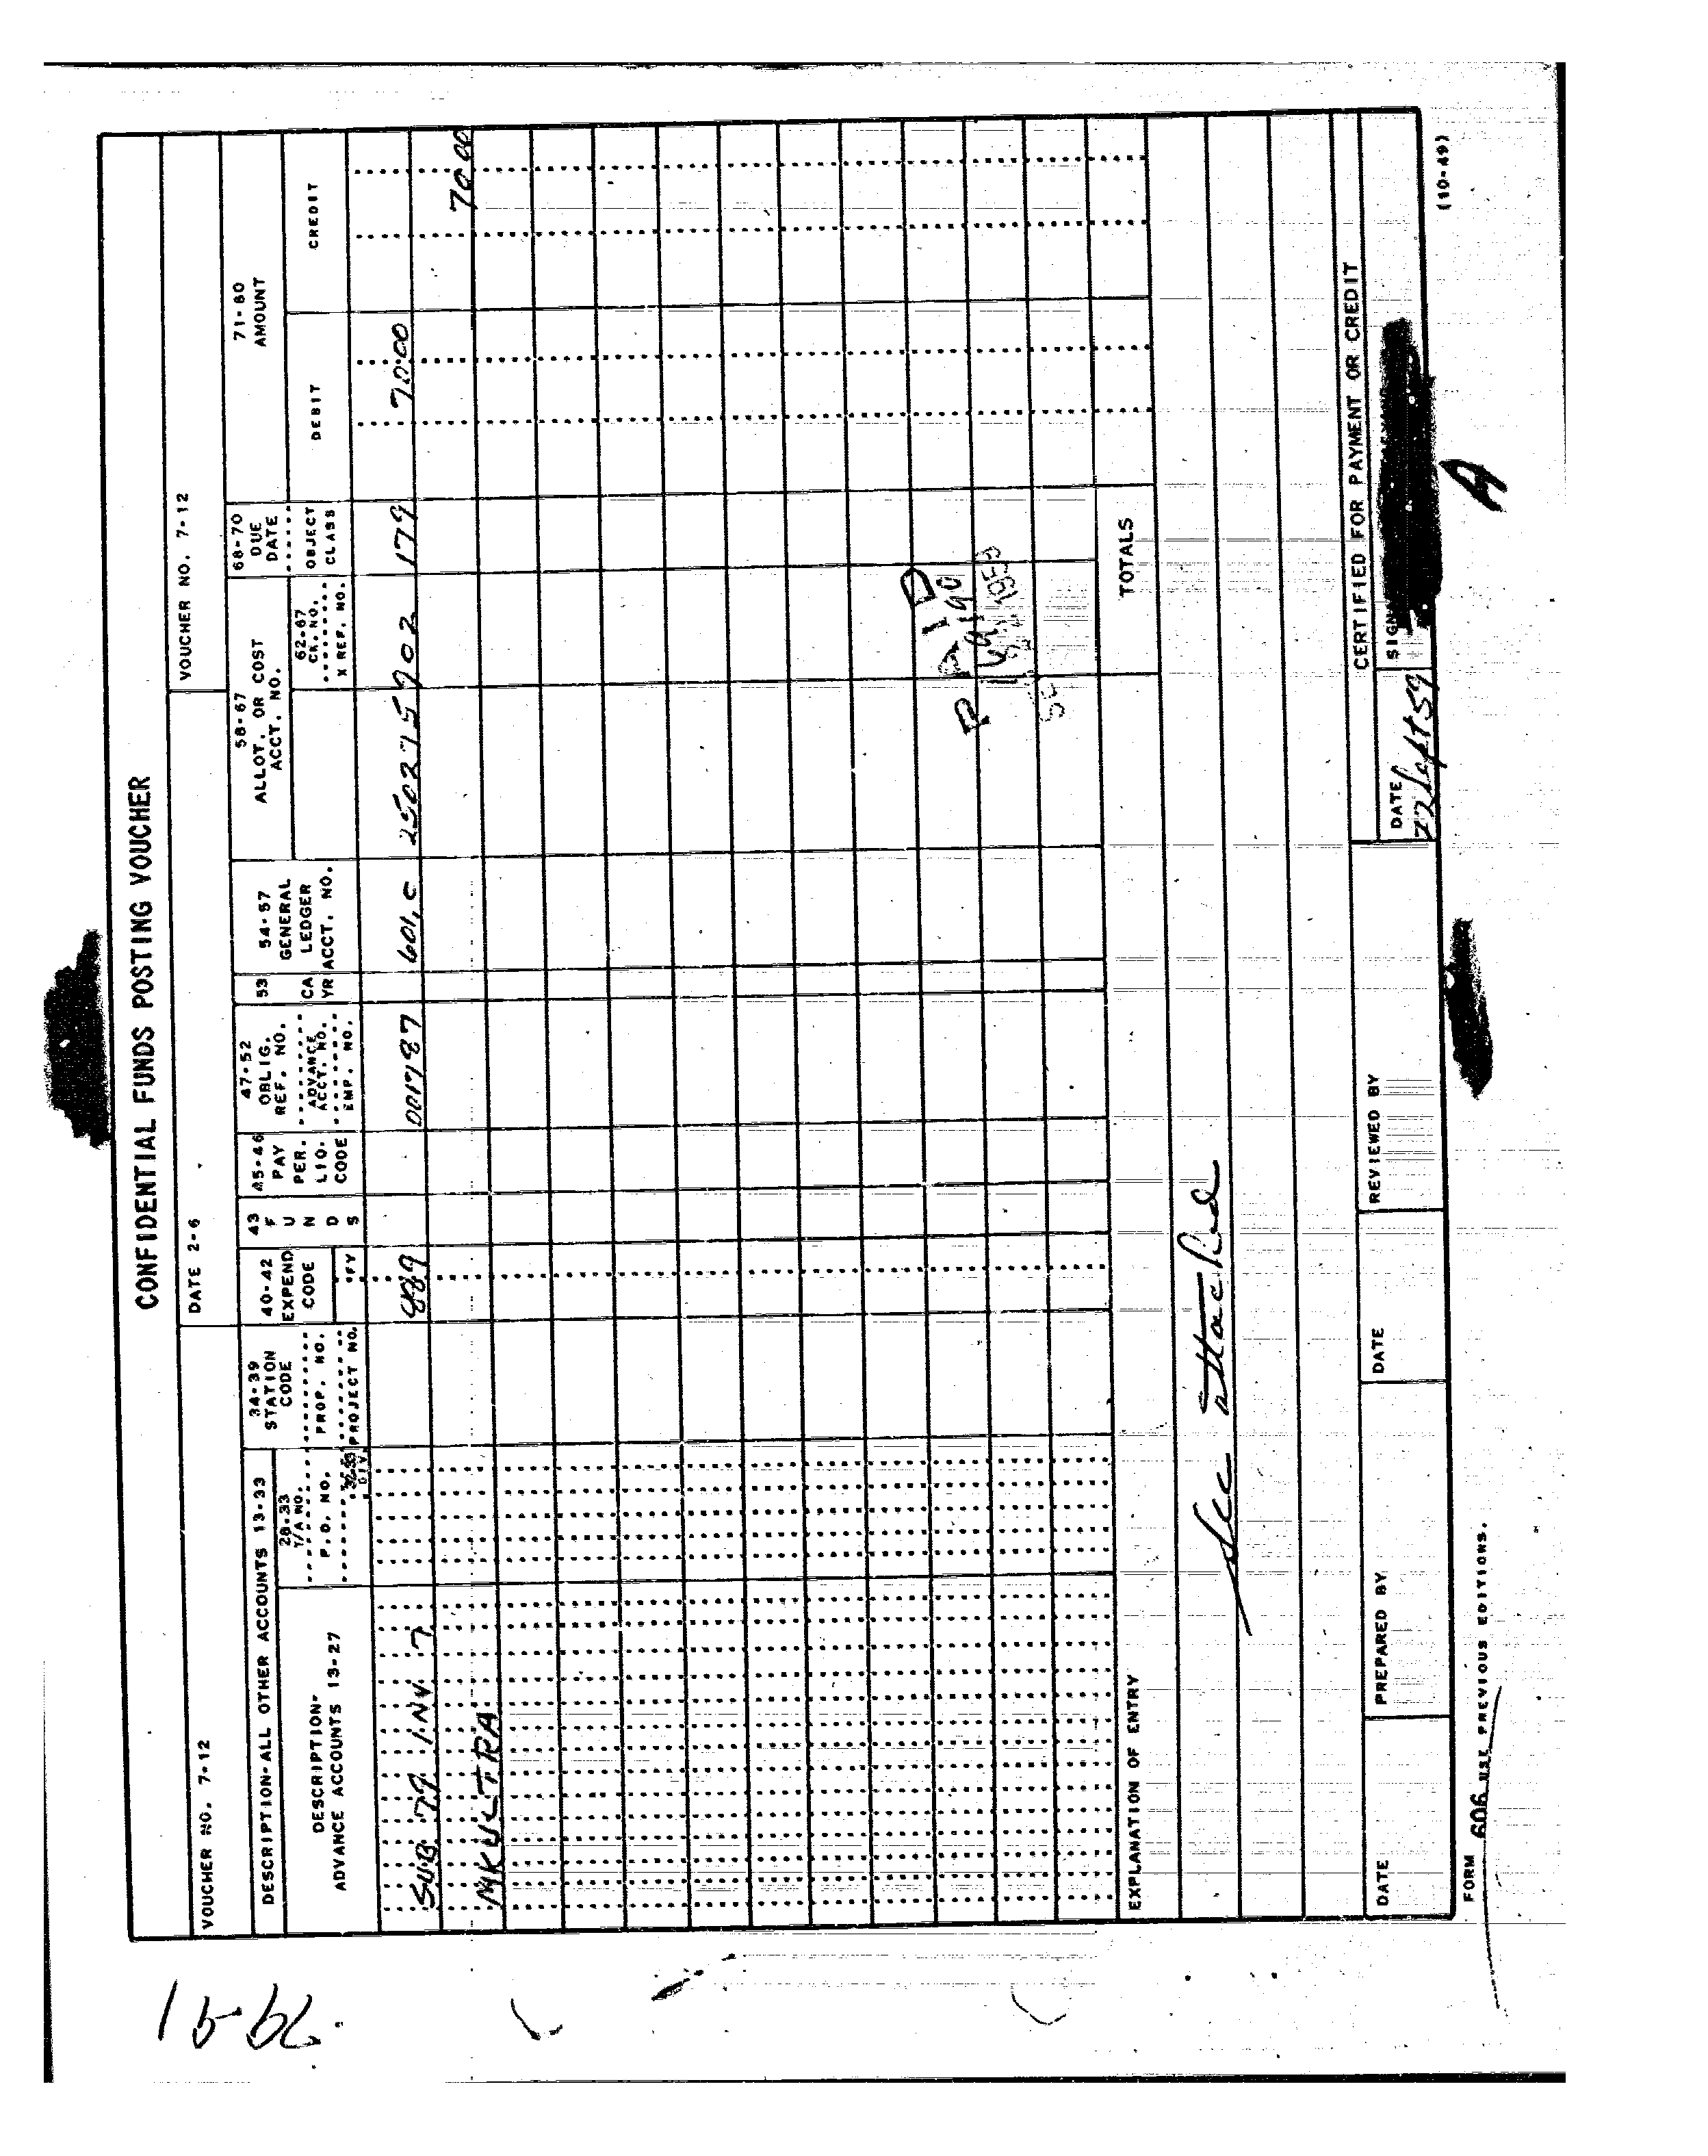 CONFIDENTIAL FUNDS POSTING VOUCHER
VOUCHER NO. 7-12 DATE 2-6 VOUCHER NO. 7-12
DESCRIPTION-ALL OTHER ACCOUNTS 13-33
DESCRIPTION-
ADVANCE ACCOUNTS 13-27
28-33
T/A NO.
P.O. NO.
DIV
34-39
STATION
CODE
PROP. NO.
PROJECT NO.
40-42
EXPEND
CODE
FY
43
F
U
N
D
S
45-46
PAY
PER.
LIQ.
CODE
47-52
OBLIG.
REF. NO.
ADVANCE
ACCT. NO.
EMP. NO.
53
CA
YR
54-57
GENERAL
LEDGER
ACCT. NO.
58-67
ALLOT. OR COST
ACCT. NO.
62-67
CK. NO.
X REF. NO.
68-70
DUE
DATE
OBJECT
CLASS
71-80
AMOUNT
DEBIT CREDIT
SUB 79 INV 7 889 001787 601.0 25027 5902 179 70.00
MKULTRA 70 00
TOTALS
EXPLANATION OF ENTRY
See attached
CERTIFIED FOR PAYMENT OR CREDIT
DATE PREPARED BY DATE REVIEWED BY DATE
22 Sept 59
FORM 606 USE PREVIOUS EDITIONS. (10-49)
A
79-91